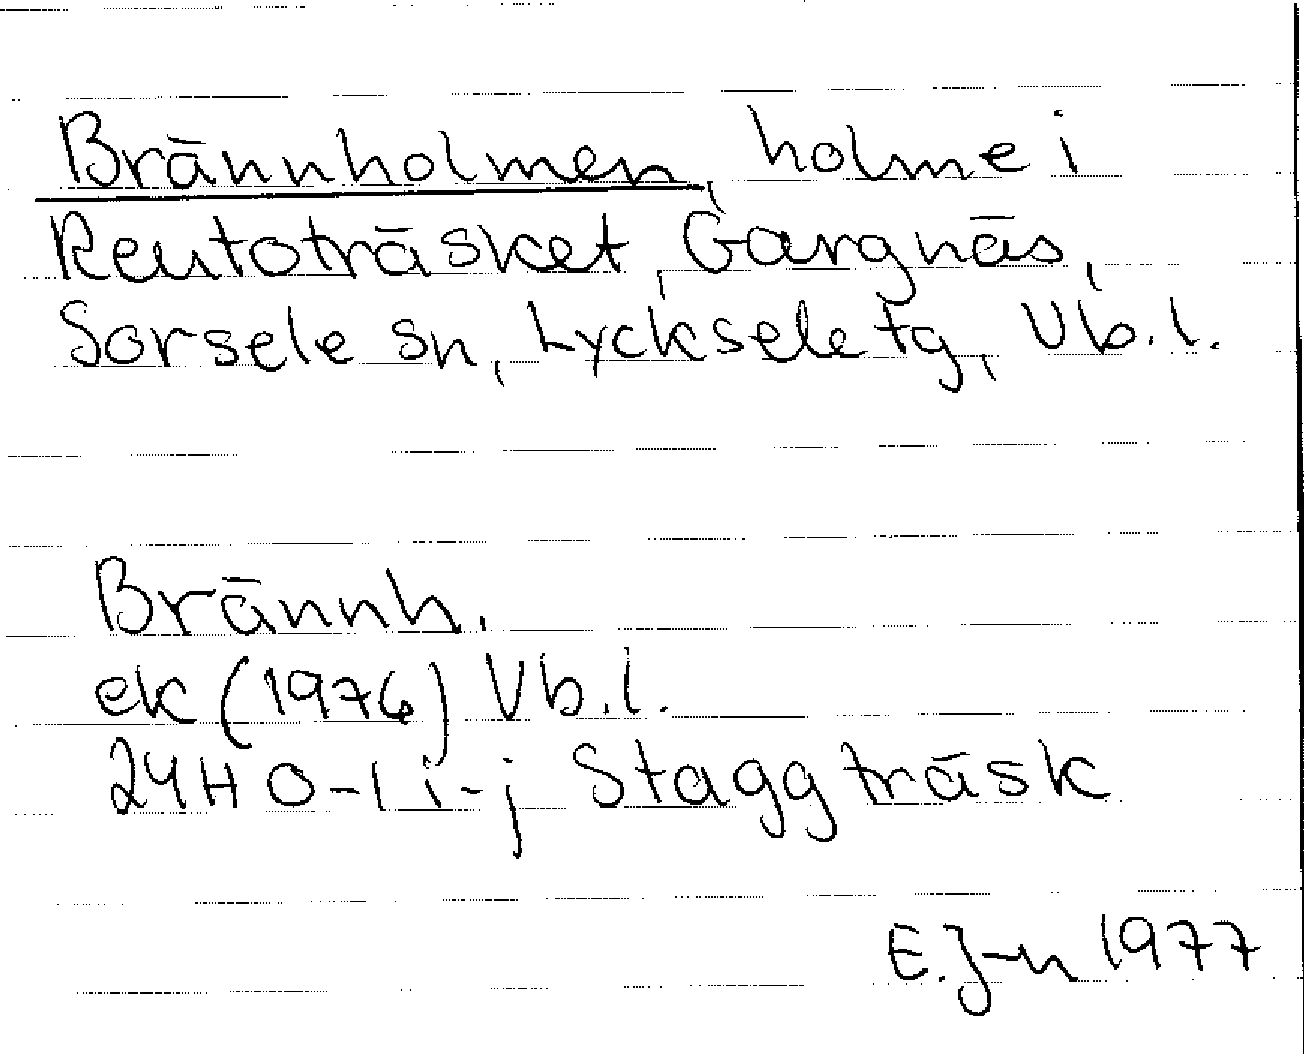 Brännholmen, holme i
Reutoträsket, Gargnäs,
Sorsele sn, Lycksele tg, Vb.l.
Brännh.
ek (1976) Vb.l.
24H 0-1 i-j Staggträsk
E. J-n 1977